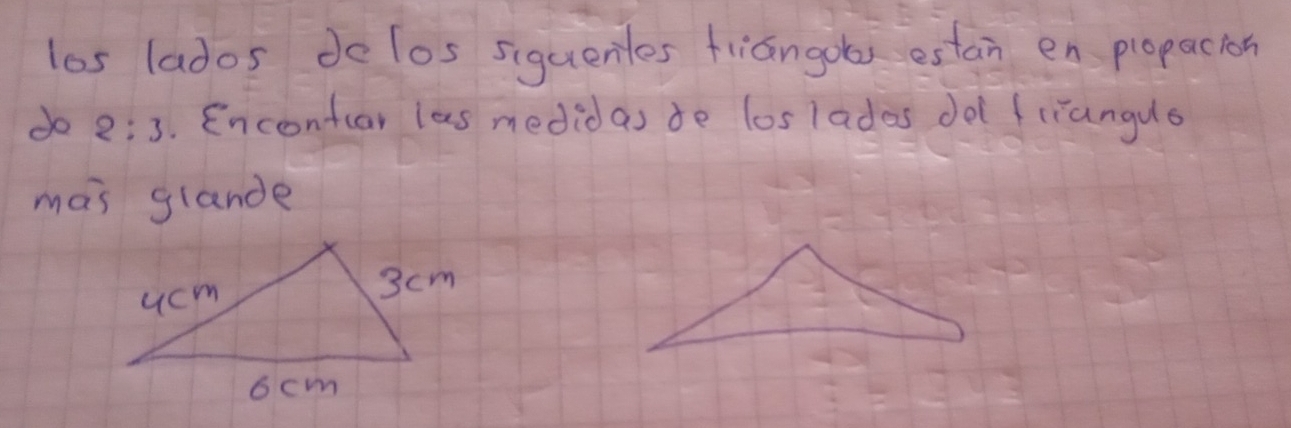 los lados de los siguentes triángulos están en propación
de 2:3. Encontrar las medidas de los lados del triángulo
más grande
4cm 3cm
6cm